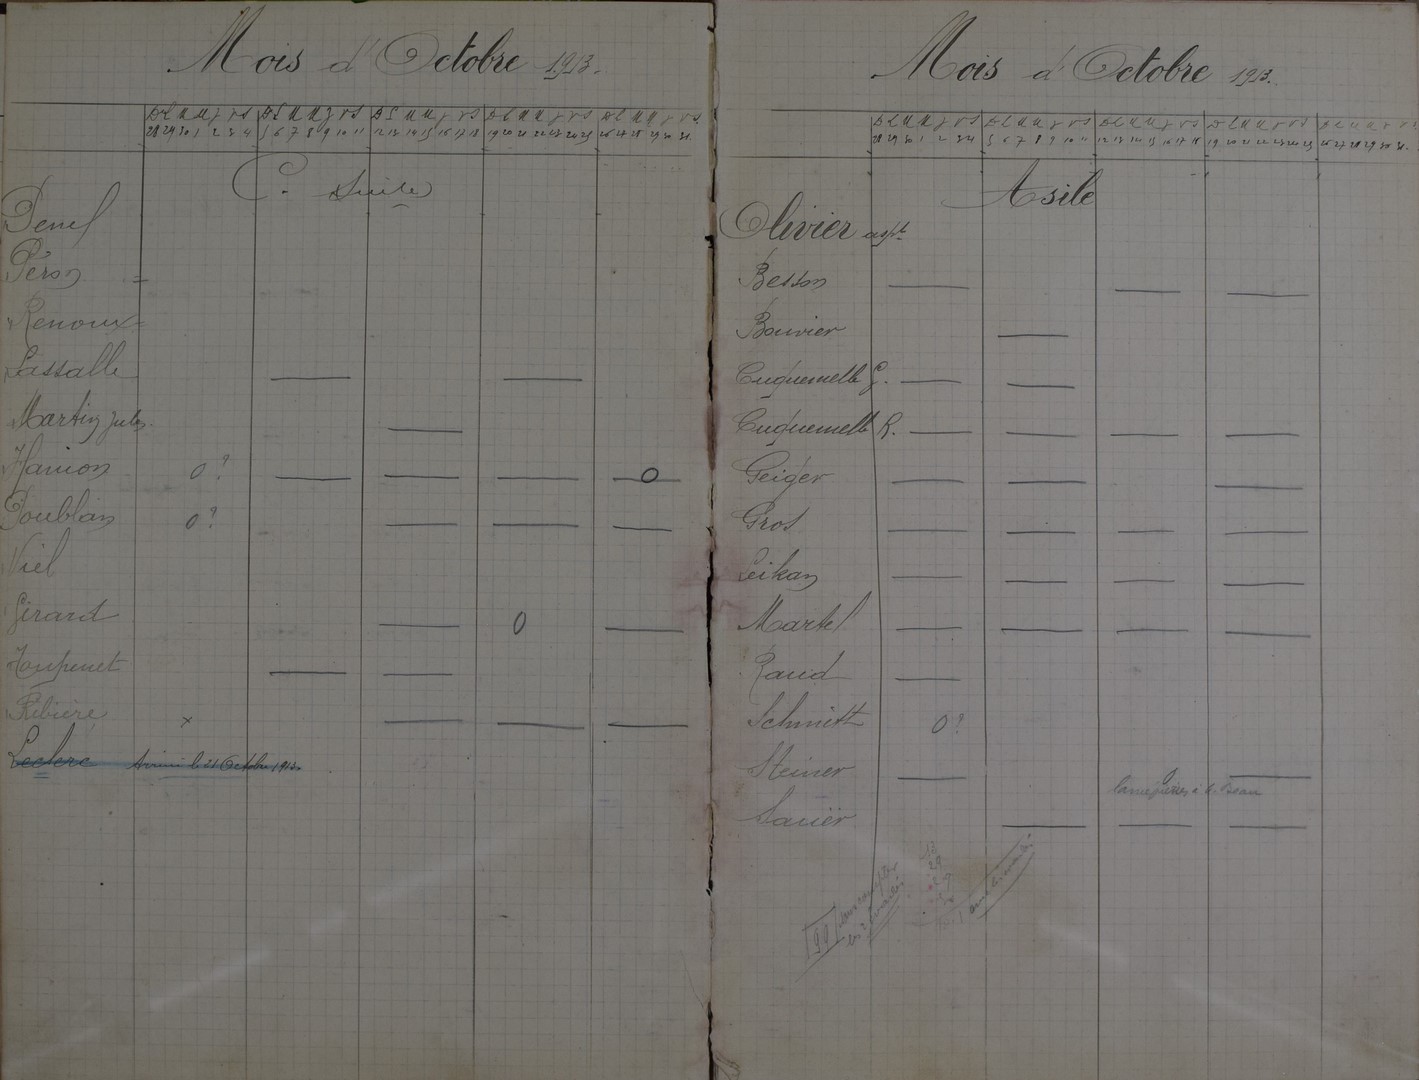 Mois d'Octobre 1913.
D L M M J V S D L M M J V S D L M M J V S D L M M J V S D L M M J V S
28 29 30 1 2 3 4 5 6 7 8 9 10 11 12 13 14 15 16 17 18 19 20 21 22 23 24 25 26 27 28 29 30 31.
C. Suite
Péron
Renoux
Lassalle
Martin Jules.
Hamon 0? 0
Doublan 0?
Viel
Girard 0
Ribière x
Leclerc Arrivé le 21 Octobre 1913
Mois d'Octobre 1913.
D L M M J V S D L M M J V S D L M M J V S D L M M J V S D L M M J V S
28 29 30 1 2 3 4 5 6 7 8 9 10 11 12 13 14 15 16 17 18 19 20 21 22 23 24 25 26 27 28 29 30 31.
Asile
Olivier aspt.
Besson
Bouvier
Cuquemelle G.
Cuquemelle R.
Geiger
Gros
Leikan
Martel
Raud
Schmitt 0?
Steiner
Sauër
199 sans compter